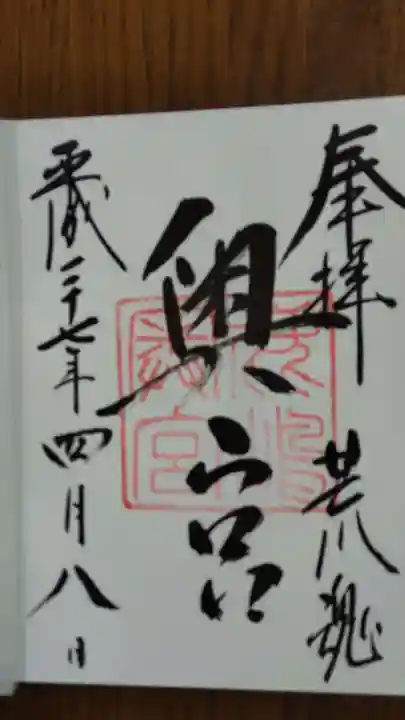 奉拝 荒魂
奥宮
平成二十七年四月八日